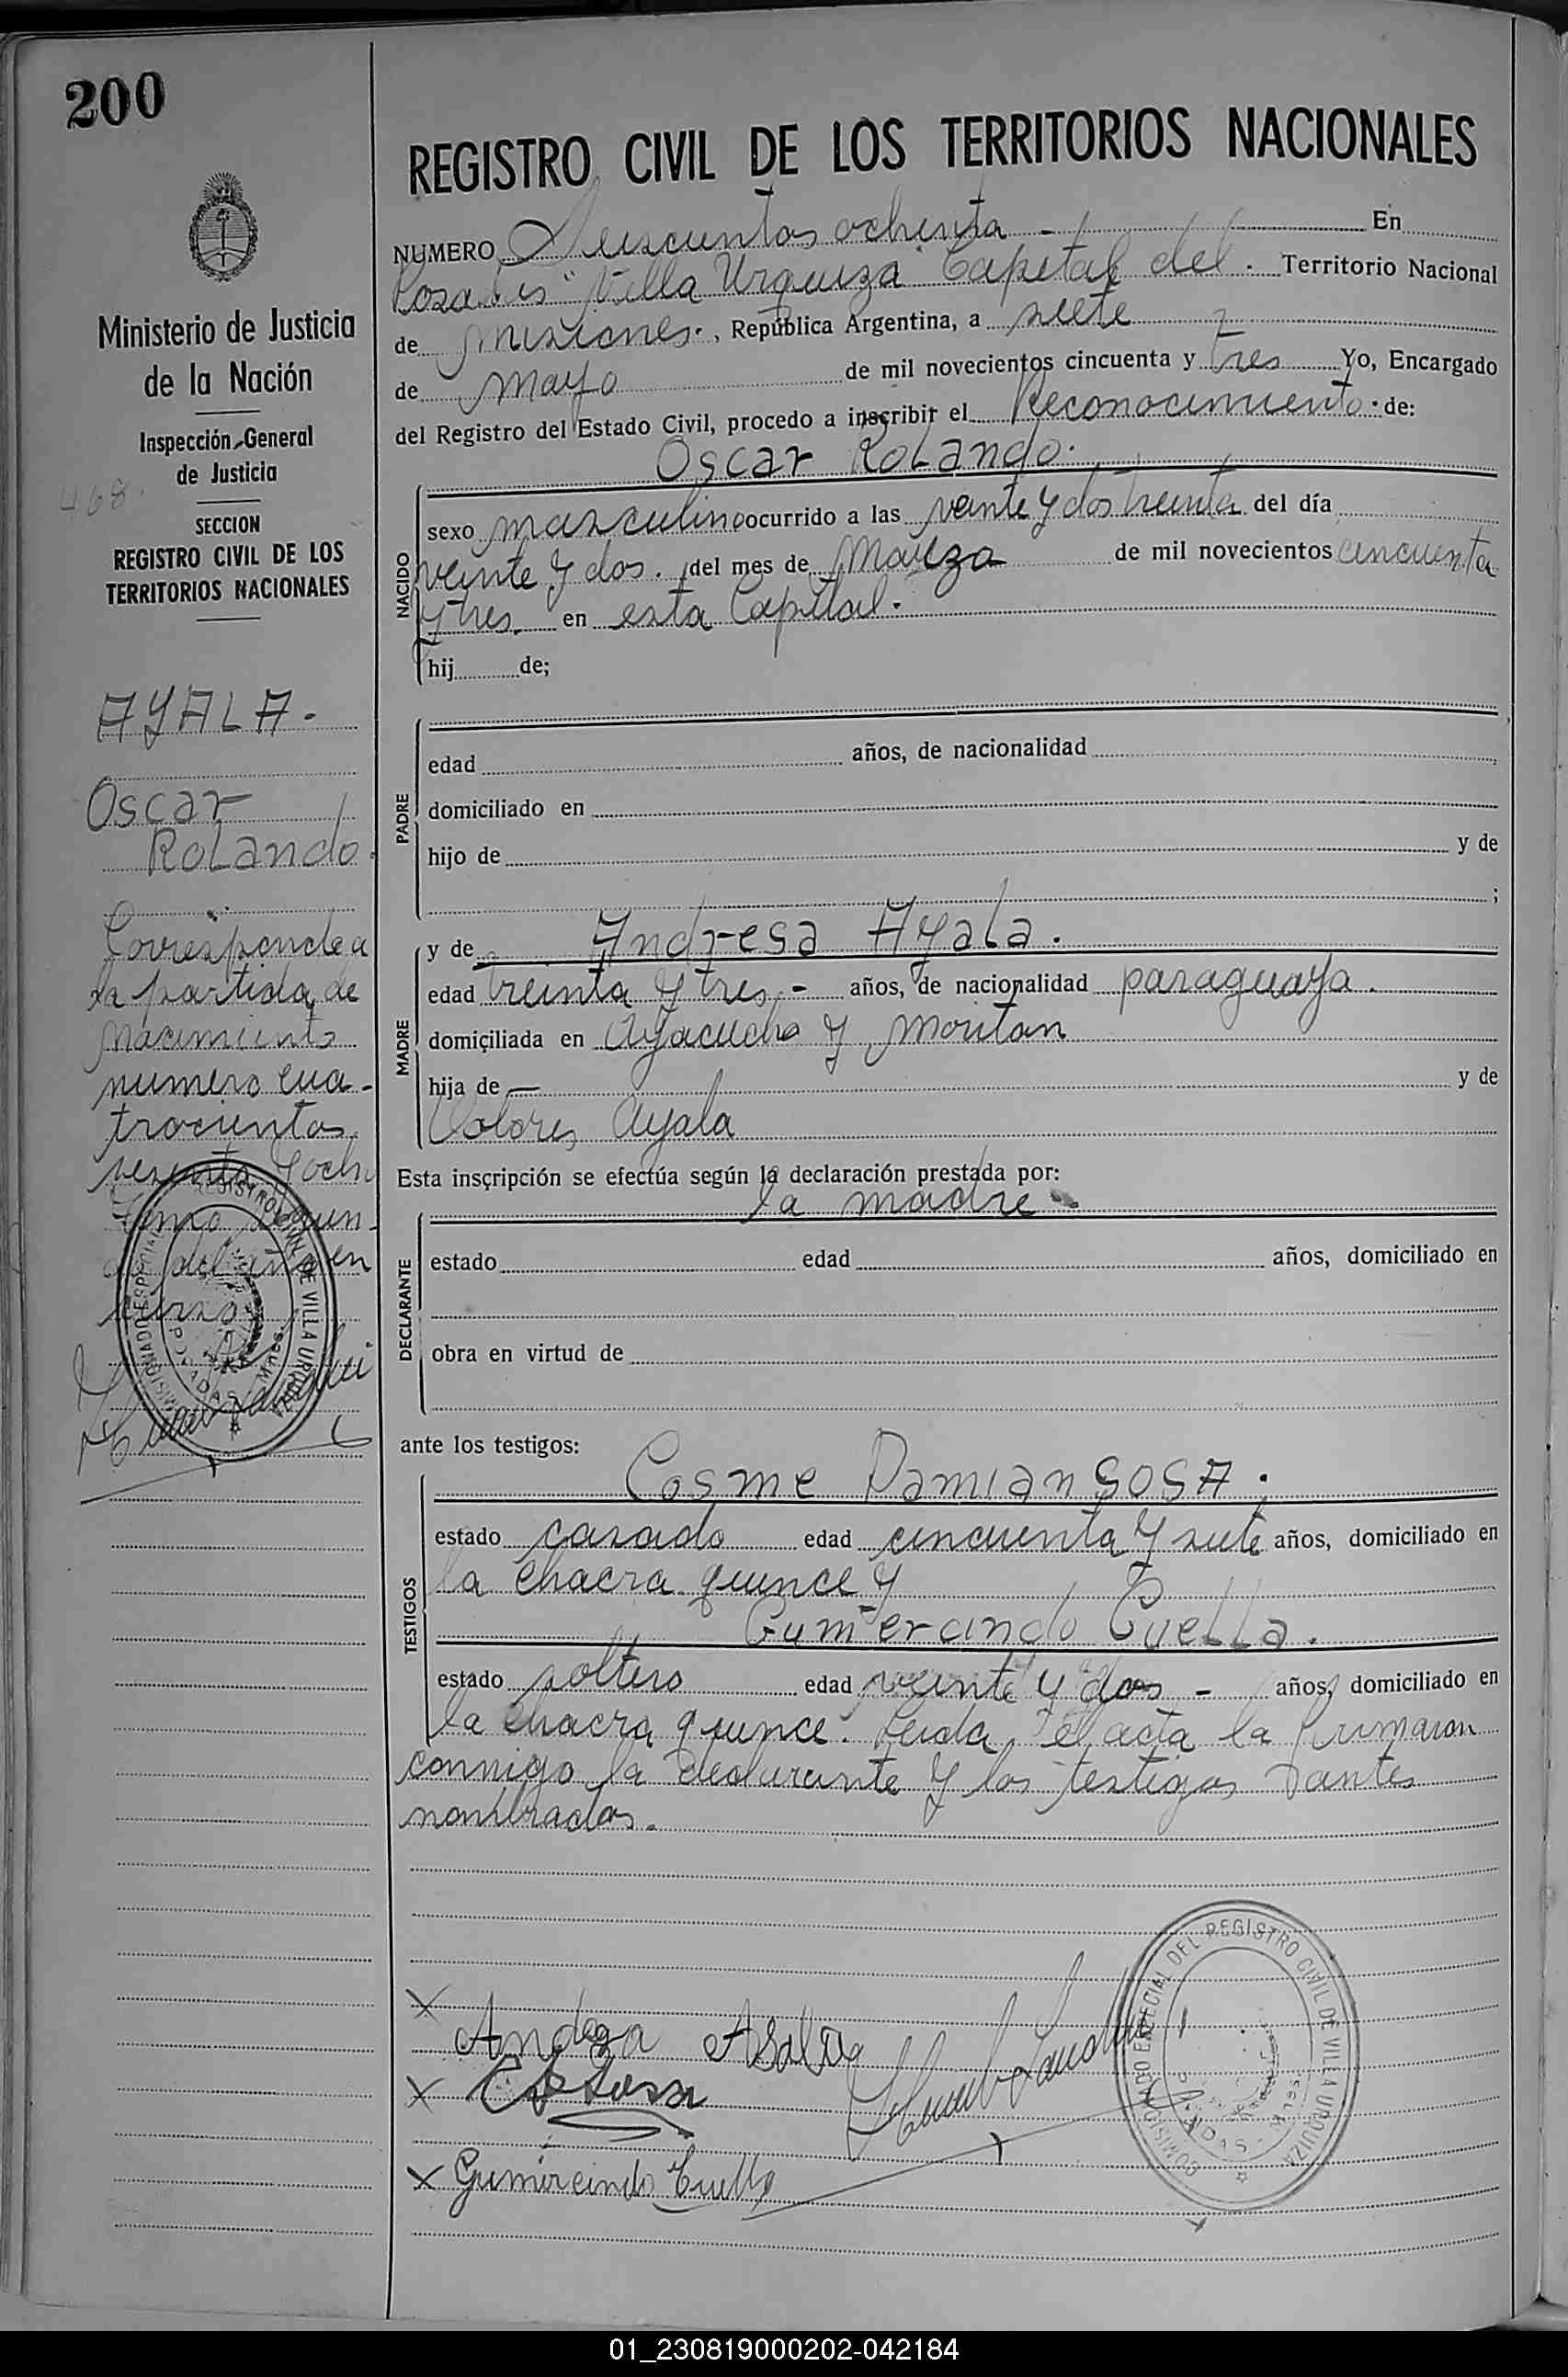 200
REGISTRO CIVIL DE LOS TERRITORIOS NACIONALES
NUMERO Seiscientos ochenta - En
Posadas "Villa Urquiza" Capital del. Territorio Nacional
de Misiones., República Argentina, a siete
de mayo de mil novecientos cincuenta y tres Yo, Encargado
del Registro del Estado Civil, procedo a inscribir el Reconocimiento. de:
Oscar Rolando.
NACIDO
sexo masculino ocurrido a las veinte y dos treinta del día
veinte y dos. del mes de Marzo de mil novecientos cincuenta
y tres. en esta Capital.
hij de;
PADRE
edad años, de nacionalidad
domiciliado en
hijo de y de
;
MADRE
y de Andresa Ayala.
edad treinta y tres,- años, de nacionalidad paraguaya.
domiciliada en Ayacucho y
hija de — y de
Dolores Ayala
Esta inscripción se efectúa según la declaración prestada por:
la madre.
DECLARANTE
estado edad años, domiciliado en
obra en virtud de
ante los testigos:
TESTIGOS
Cosme Damian SOSA.
estado casado edad cincuenta y siete años, domiciliado en
la chacra quince y
Gumercindo Cuella.
estado soltero edad veinte y dos - años, domiciliado en
la chacra quince. Leida el acta la firmaron
conmigo la declarante y los testigos antes
nombrados.
Ministerio de Justicia
de la Nación
Inspección General
de Justicia
468.
SECCION
REGISTRO CIVIL DE LOS
TERRITORIOS NACIONALES
AYALA.-
Oscar
Rolando.
Corresponde a
la partida de
Nacimiento
numero cua-
trocientos
sesenta y ocho
Tomo segun-
do del año en
curso
COMISIONADO ESPECIAL DEL REGISTRO CIVIL DE VILLA URQUIZA
POSADAS - Mnes.
X
X
X Gumircindo Cuella
COMISIONADO ESPECIAL DEL REGISTRO CIVIL DE VILLA URQUIZA
POSADAS - Mnes.
01_230819000202-042184